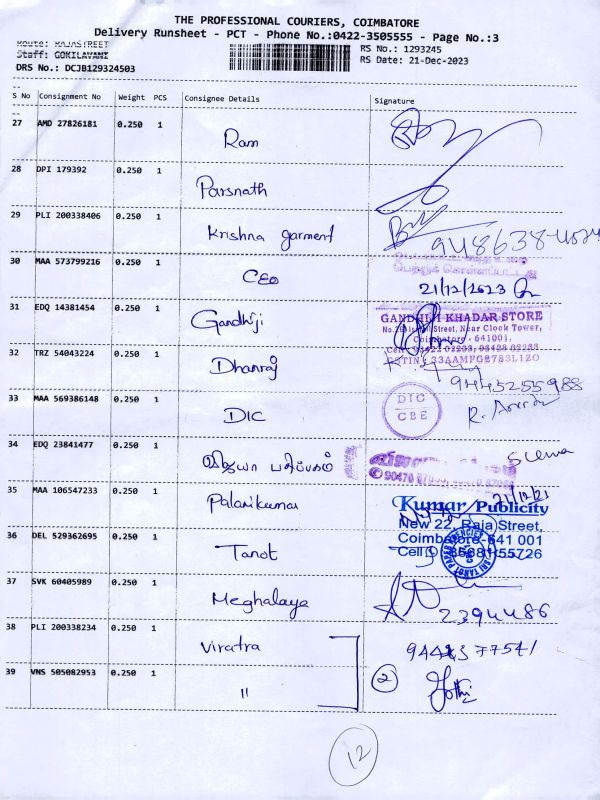 THE PROFESSIONAL COURIERS, COIMBATORE
Delivery Runsheet - PCT - Phone No.:0422-3505555 - Page No.:3
Route: RAJASTREET
RS No.: 1293245
Staff: GOKILAVANI
RS Date: 21-Dec-2023
DRS No.: DCJB129324503
S No Consignment No Weight PCS Consignee Details Signature
27 AMD 27826181 0.250 1 Ram
28 DPI 179392 0.250 1 Parsnath
29 PLI 200338406 0.250 1 Krishna garment
30 MAA 573799216 0.250 1 CEO 21/12/2023
31 EDQ 14381454 0.250 1 Gandhiji
GANDHIJI KHADAR STORE
Street, Near Clock Tower,
Coimbatore - 641001,
32 TRZ 54043224 0.250 1 Dhanraj
9445255988
33 MAA 569386148 0.250 1 DIC
DIC
CBE
34 EDQ 23841477 0.250 1 விஜயா பதிப்பகம்
35 MAA 106547233 0.250 1 Palanikumar
Kumar Publicity
New 22, Raja Street,
Coimbatore-641 001
36 DEL 529362695 0.250 1 Tanot
37 SVK 60405989 0.250 1 Meghalaya
2394486
38 PLI 200338234 0.250 1 Viratra
39 VNS 505082953 0.250 1 "
2 Jothi
12